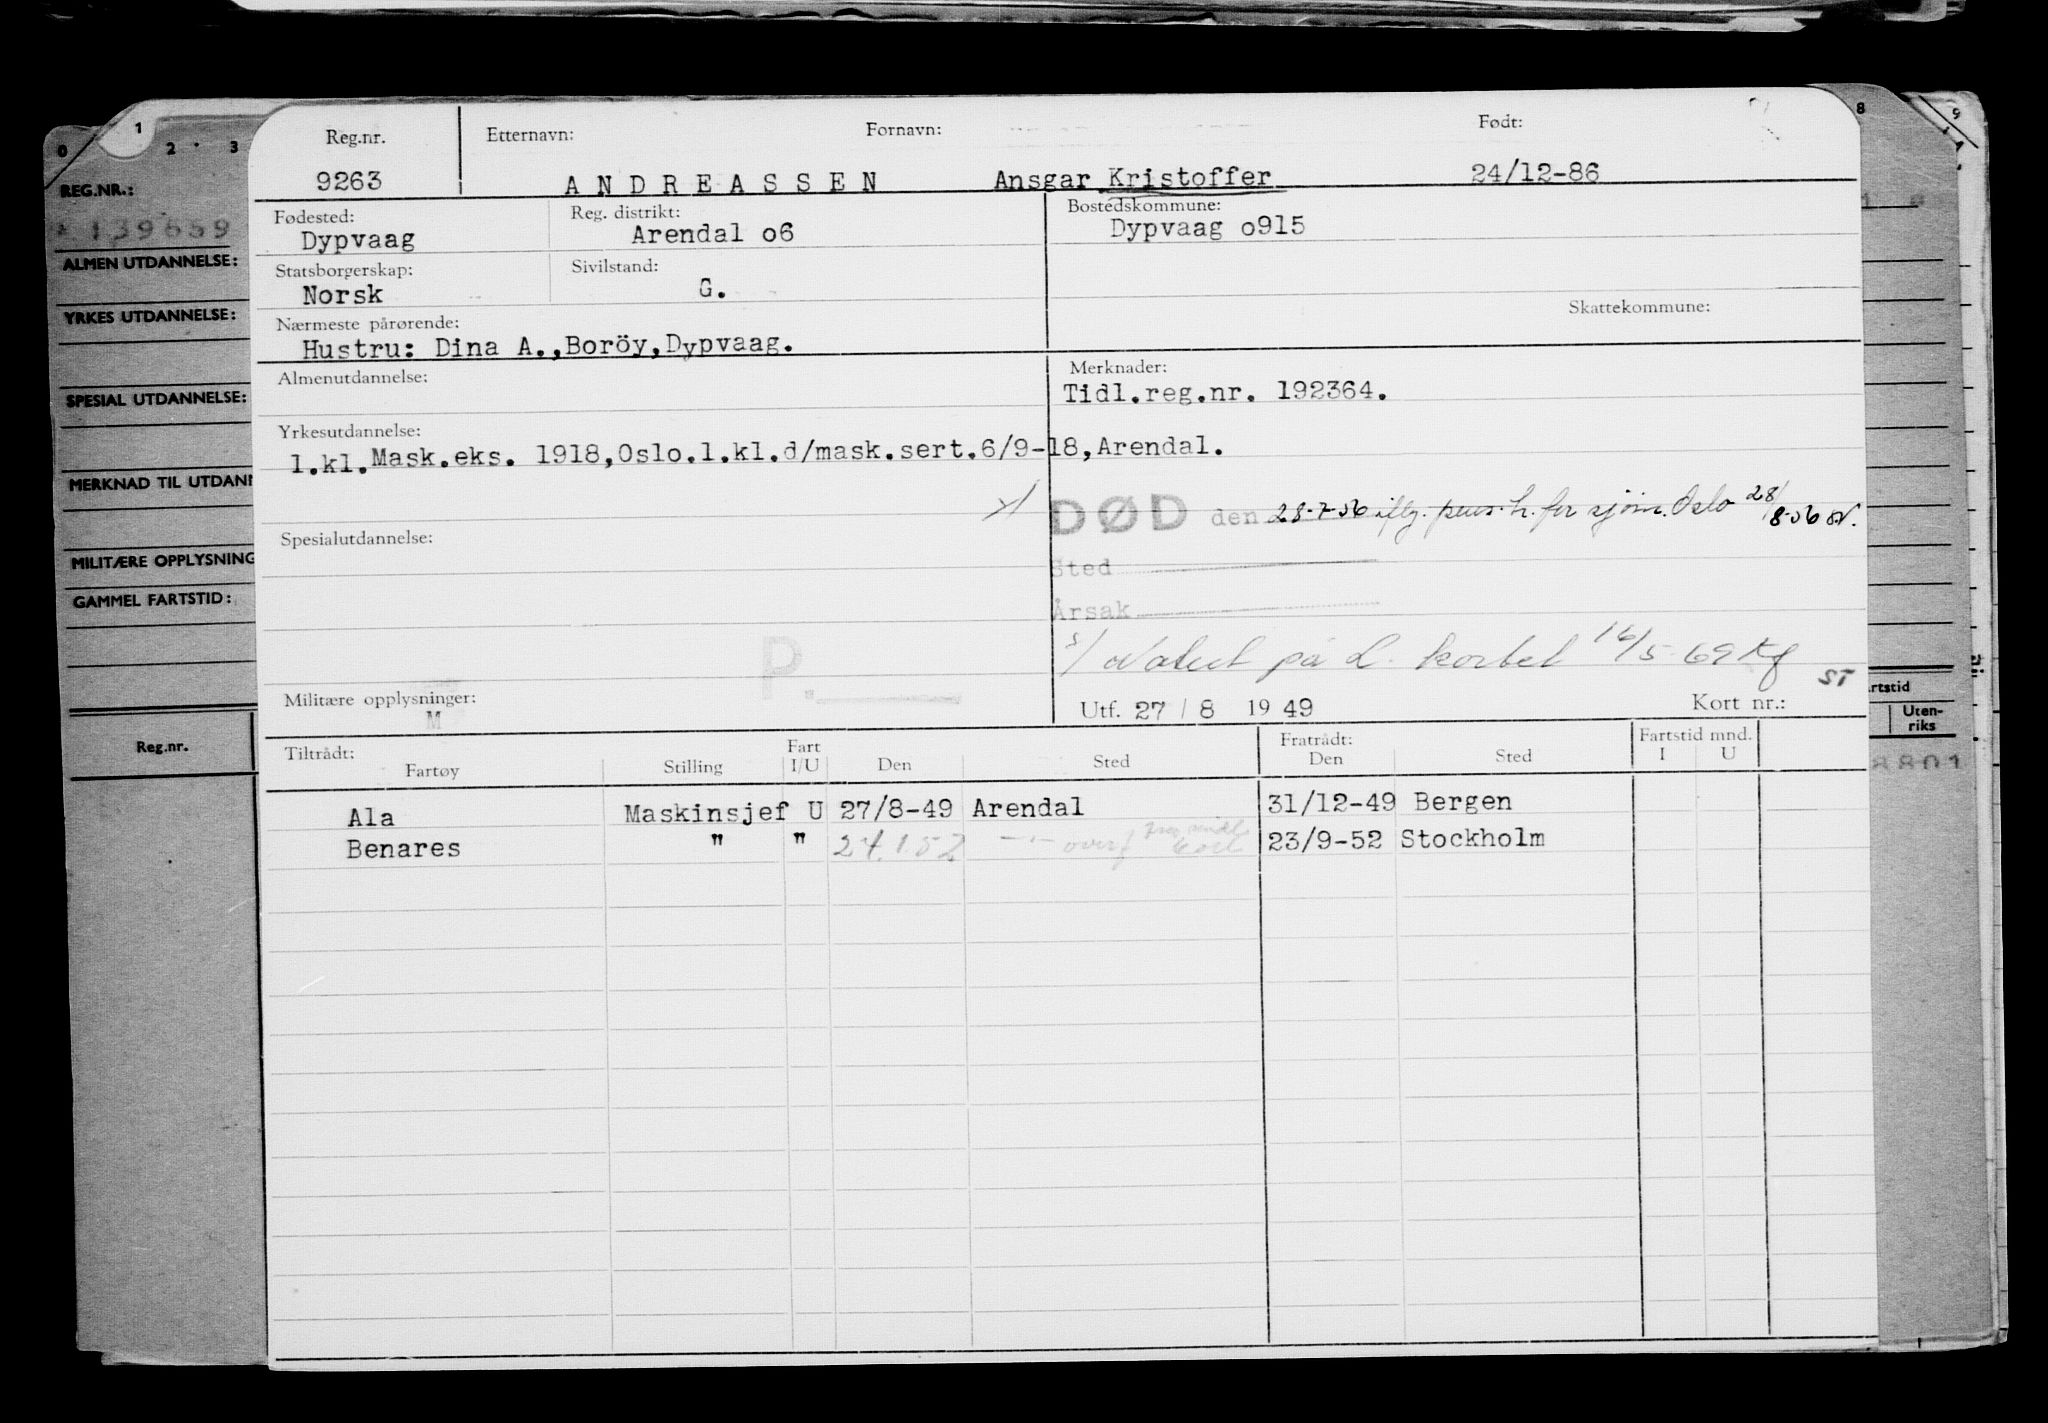 0 1 2 3 8 9
REG.NR.:
139659
ALMEN UTDANNELSE:
YRKES UTDANNELSE:
SPESIAL UTDANNELSE:
MERKNAD TIL UTDAN
MILITÆRE OPPLYSNING
GAMMEL FARTSTID:
Reg.nr.
rtstid
Uten-
riks
8801
Reg.nr. Etternavn: Fornavn: Født:
9263 ANDREASSEN Ansgar Kristoffer 24/12-86
Fødested: Reg. distrikt: Bostedskommune:
Dypvaag Arendal o6 Dypvaag o915
Statsborgerskap: Sivilstand:
Norsk G.
Skattekommune:
Nærmeste pårørende:
Hustru: Dina A.,Boröy,Dypvaag.
Almenutdannelse: Merknader:
Tidl.reg.nr. 192364.
Yrkesutdannelse:
1.kl.Mask.eks. 1918,Oslo.1.kl.d/mask.sert.6/9-18,Arendal.
DØD den 28-7-56 iflg. pens.h. for sjöm. Oslo 28/8-56
Spesialutdannelse:
Sted
Årsak
P.
på L. kortet 16/5-69 Kf
ST
Militære opplysninger:
M
Utf. 27 / 8 1949 Kort nr.:
Tiltrådt: Fart Fratrådt: Fartstid mnd.
Fartøy Stilling I/U Den Sted Den Sted I U
Ala Maskinsjef U 27/8-49 Arendal 31/12-49 Bergen
Benares " " 24.1.52 overf 23/9-52 Stockholm